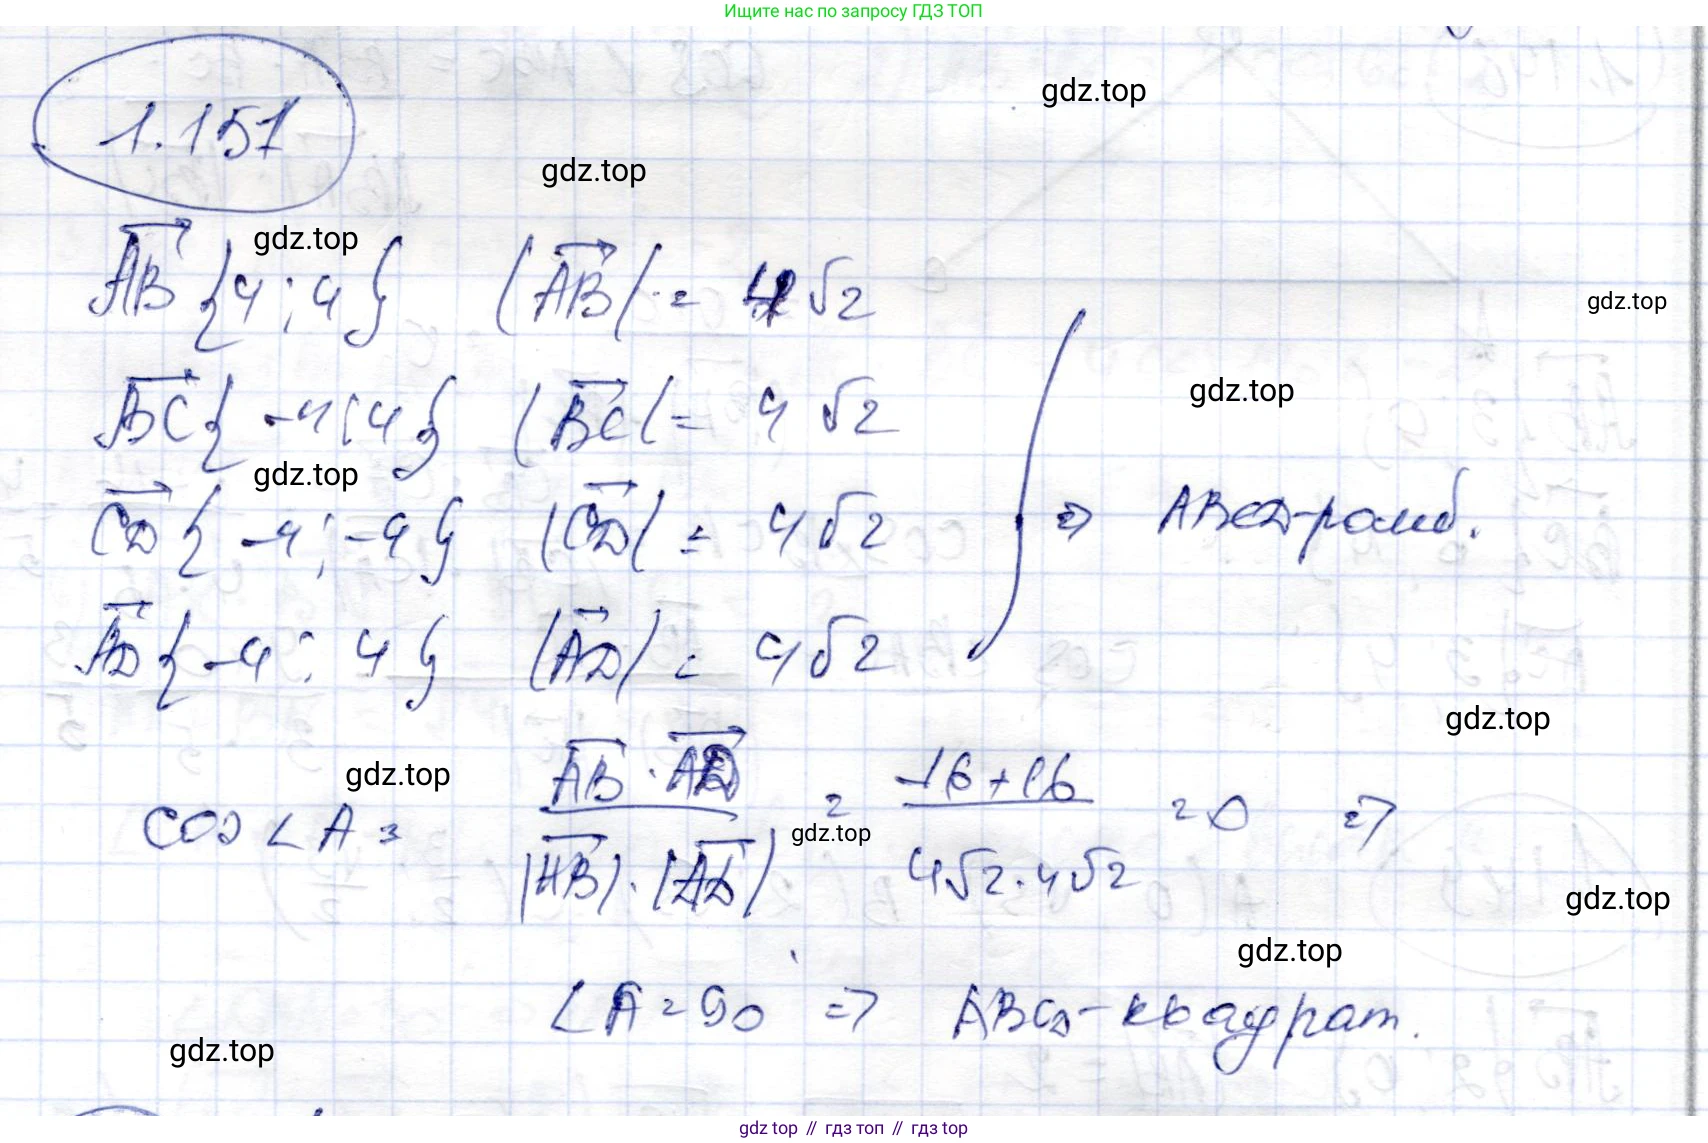 Ищите нас по запросу ГДЗ ТОП
gdz.top
1.151
gdz.top
gdz.top
AB {4; 4} |AB| = 4√2
gdz.top
gdz.top
BC {-4; 4} |BC| = 4√2
gdz.top
CD {-4; -4} |CD| = 4√2 => ABCD-ромб.
AD {-4; 4} |AD| = 4√2
gdz.top
gdz.top
cos ∠A = AB · AD / |AB| · |AD| = -16+16 / 4√2 · 4√2 = 0 =>
gdz.top
gdz.top
gdz.top
∠A = 90 => ABCD-квадрат.
gdz.top
gdz.top // гдз топ // гдз top